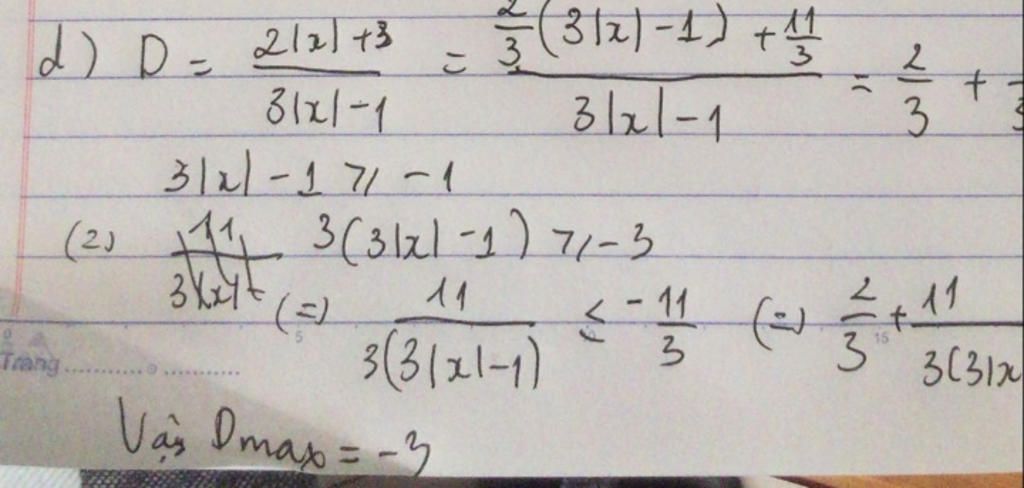 d) D = (2|x| + 3)/(3|x| - 1) = (2/3(3|x| - 1) + 11/3)/(3|x| - 1) = 2/3 +
3|x| - 1 ≥ -1
(=) 3(3|x| - 1) ≥ -3
(=) 11/(3(3|x| - 1)) ≤ -11/3 (=) 2/3 + 11/(3(3|x
Trang
5 15
Vậy Dmax = -3